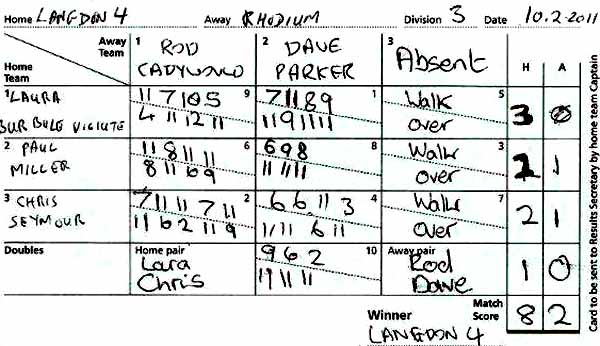 Home LANGDON 4 Away RHODIUM Division 3 Date 10.2-2011
Away Team
Home Team
1 ROD CADYWOULD
2 DAVE PARKER
3 Absent
H A
1 LAURA BURBULEVICIUTE
11 7 10 5 9
4 11 12 11
7 11 8 9 1
11 9 11 11
Walk 5
over
3 0
2 PAUL MILLER
11 8 11 11 6
8 11 6 9
6 9 8 8
11 11 11
Walk 3
over
2 1
3 CHRIS SEYMOUR
7 11 11 7 11 2
11 6 2 11 9
6 6 11 3 4
11 11 6 11
Walk 7
over
2 1
Doubles
Home pair
Lara
Chris
9 6 2 10
11 11 11
Away pair
Rod
Dave
1 0
Winner
LANGDON 4
Match Score
8 2
Card to be sent to Results Secretary by home team Captain